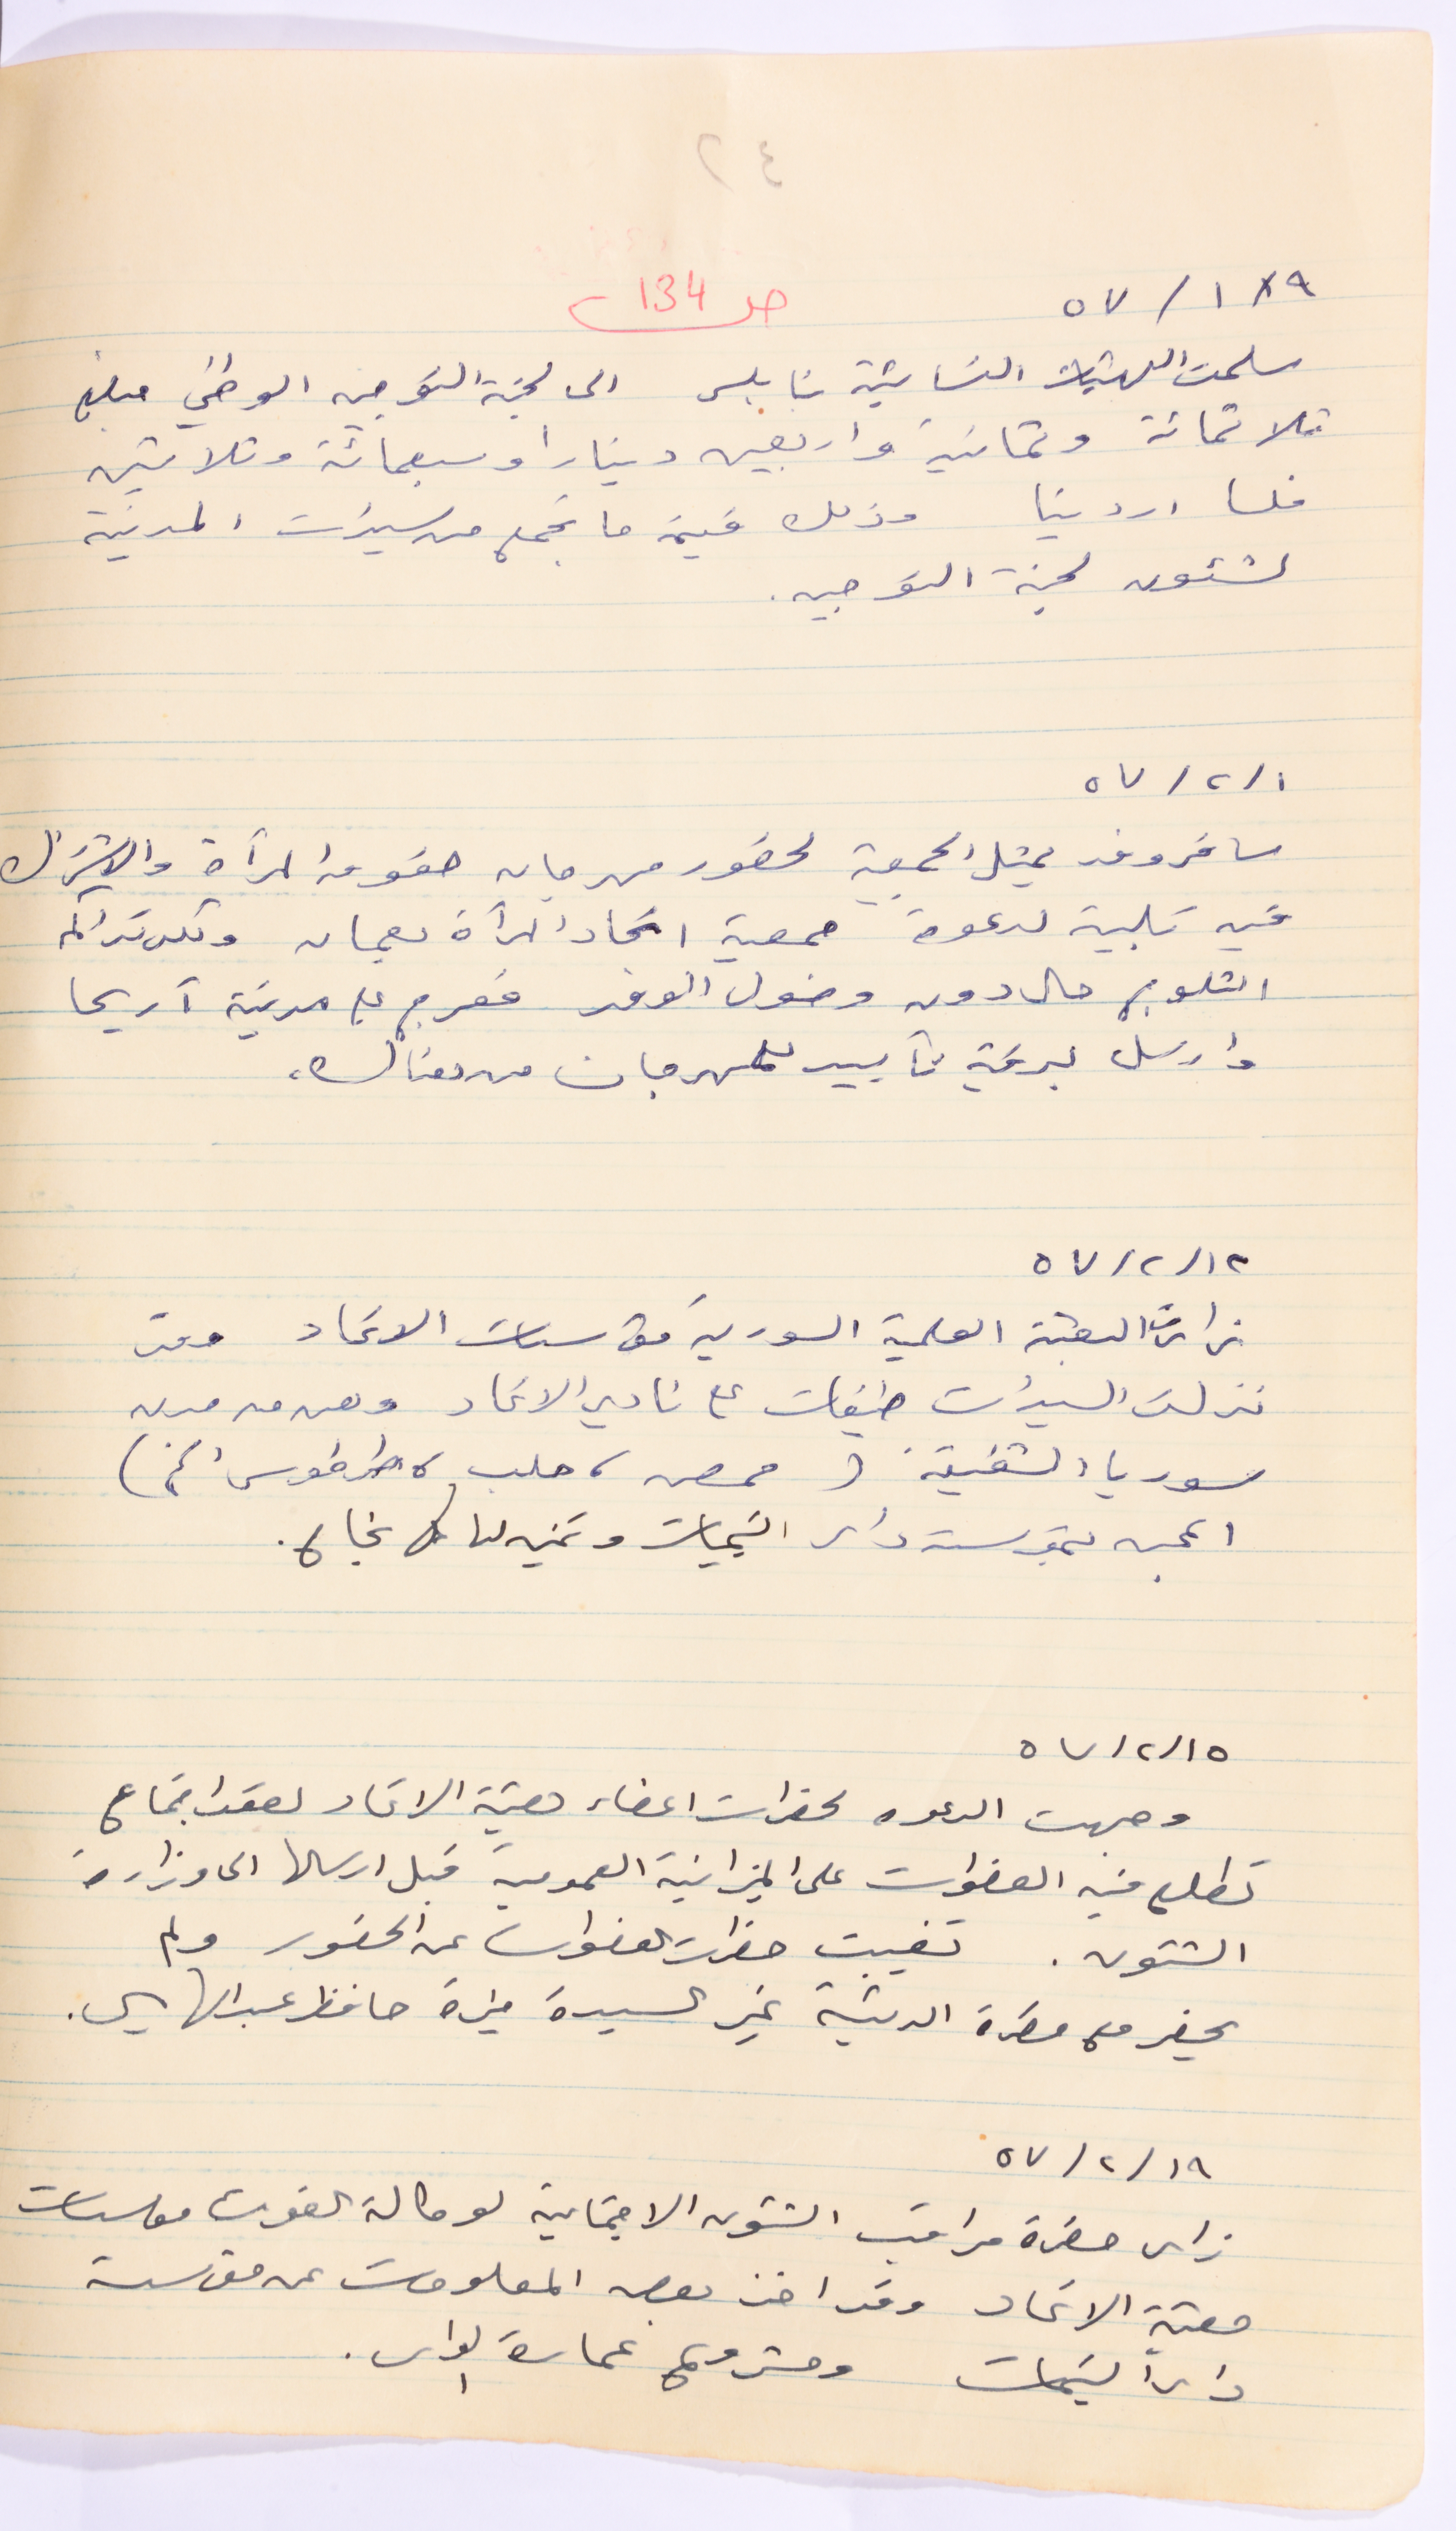 ٢٤
ص 134
٥٧ / ١ / ٩
سلمت الهيئات النسائية بنابلس الى لجنة التوجيه الوطني مبلغ
ثلاثمائة وثمانية واربعين دينارا وسبعمائة وثلاثين
فلسا اردنيا وذلك قيمة ما تجمع من سيدات المدينة
لشئون لجنة التوجيه.
٥٧ / ٢ / ١
سافر وفد يمثل الجمعية لحضور مهرجان حقوق المرآة والاشتراك
فيه تلبية لدعوة جمعية اتحاد المرآة بعمان ولكن تراكم
الثلوج حال دون وصول الوفد فعرج على مدينة آريحا
وارسل برقية تآييد للمهرجان من هناك.
٥٧ / ٢ / ١٢
زارت البعثة العلمية السورية مؤسسات الاتحاد وقد
نزلت السيدات ضيفات على نادي الاتحاد وهن من مدن
سوريا الشقيقة ( حمص ، حلب ، طرطوس الخ )
اعجبن بمؤسسة دار اليتيمات وتمنين لنا كل نجاح.
٥٧ / ٢ / ١٥
وجهت الدعوه لحضرات اعضاء هيئة الاتحاد لعقد اجتماع
تطلع فيه العضوات على الميزانية العمومية قبل ارسالها الى وزارة
الشئون . تغيبت حضرات العضوات عن الحضور ولم
يحضر مع حضرة الرئيسة غير السيدة حافظ عبد الهادي.
٥٧ / ٢ / ١٩
زار حضرة مراقب الشئون الاجتماعية لوكالة الغوث مؤسسات
هيئة الاتحاد وقد اخذ بعض المعلومات عن مؤسسة
دار اليتيمات ومشروع عمارة الدار.